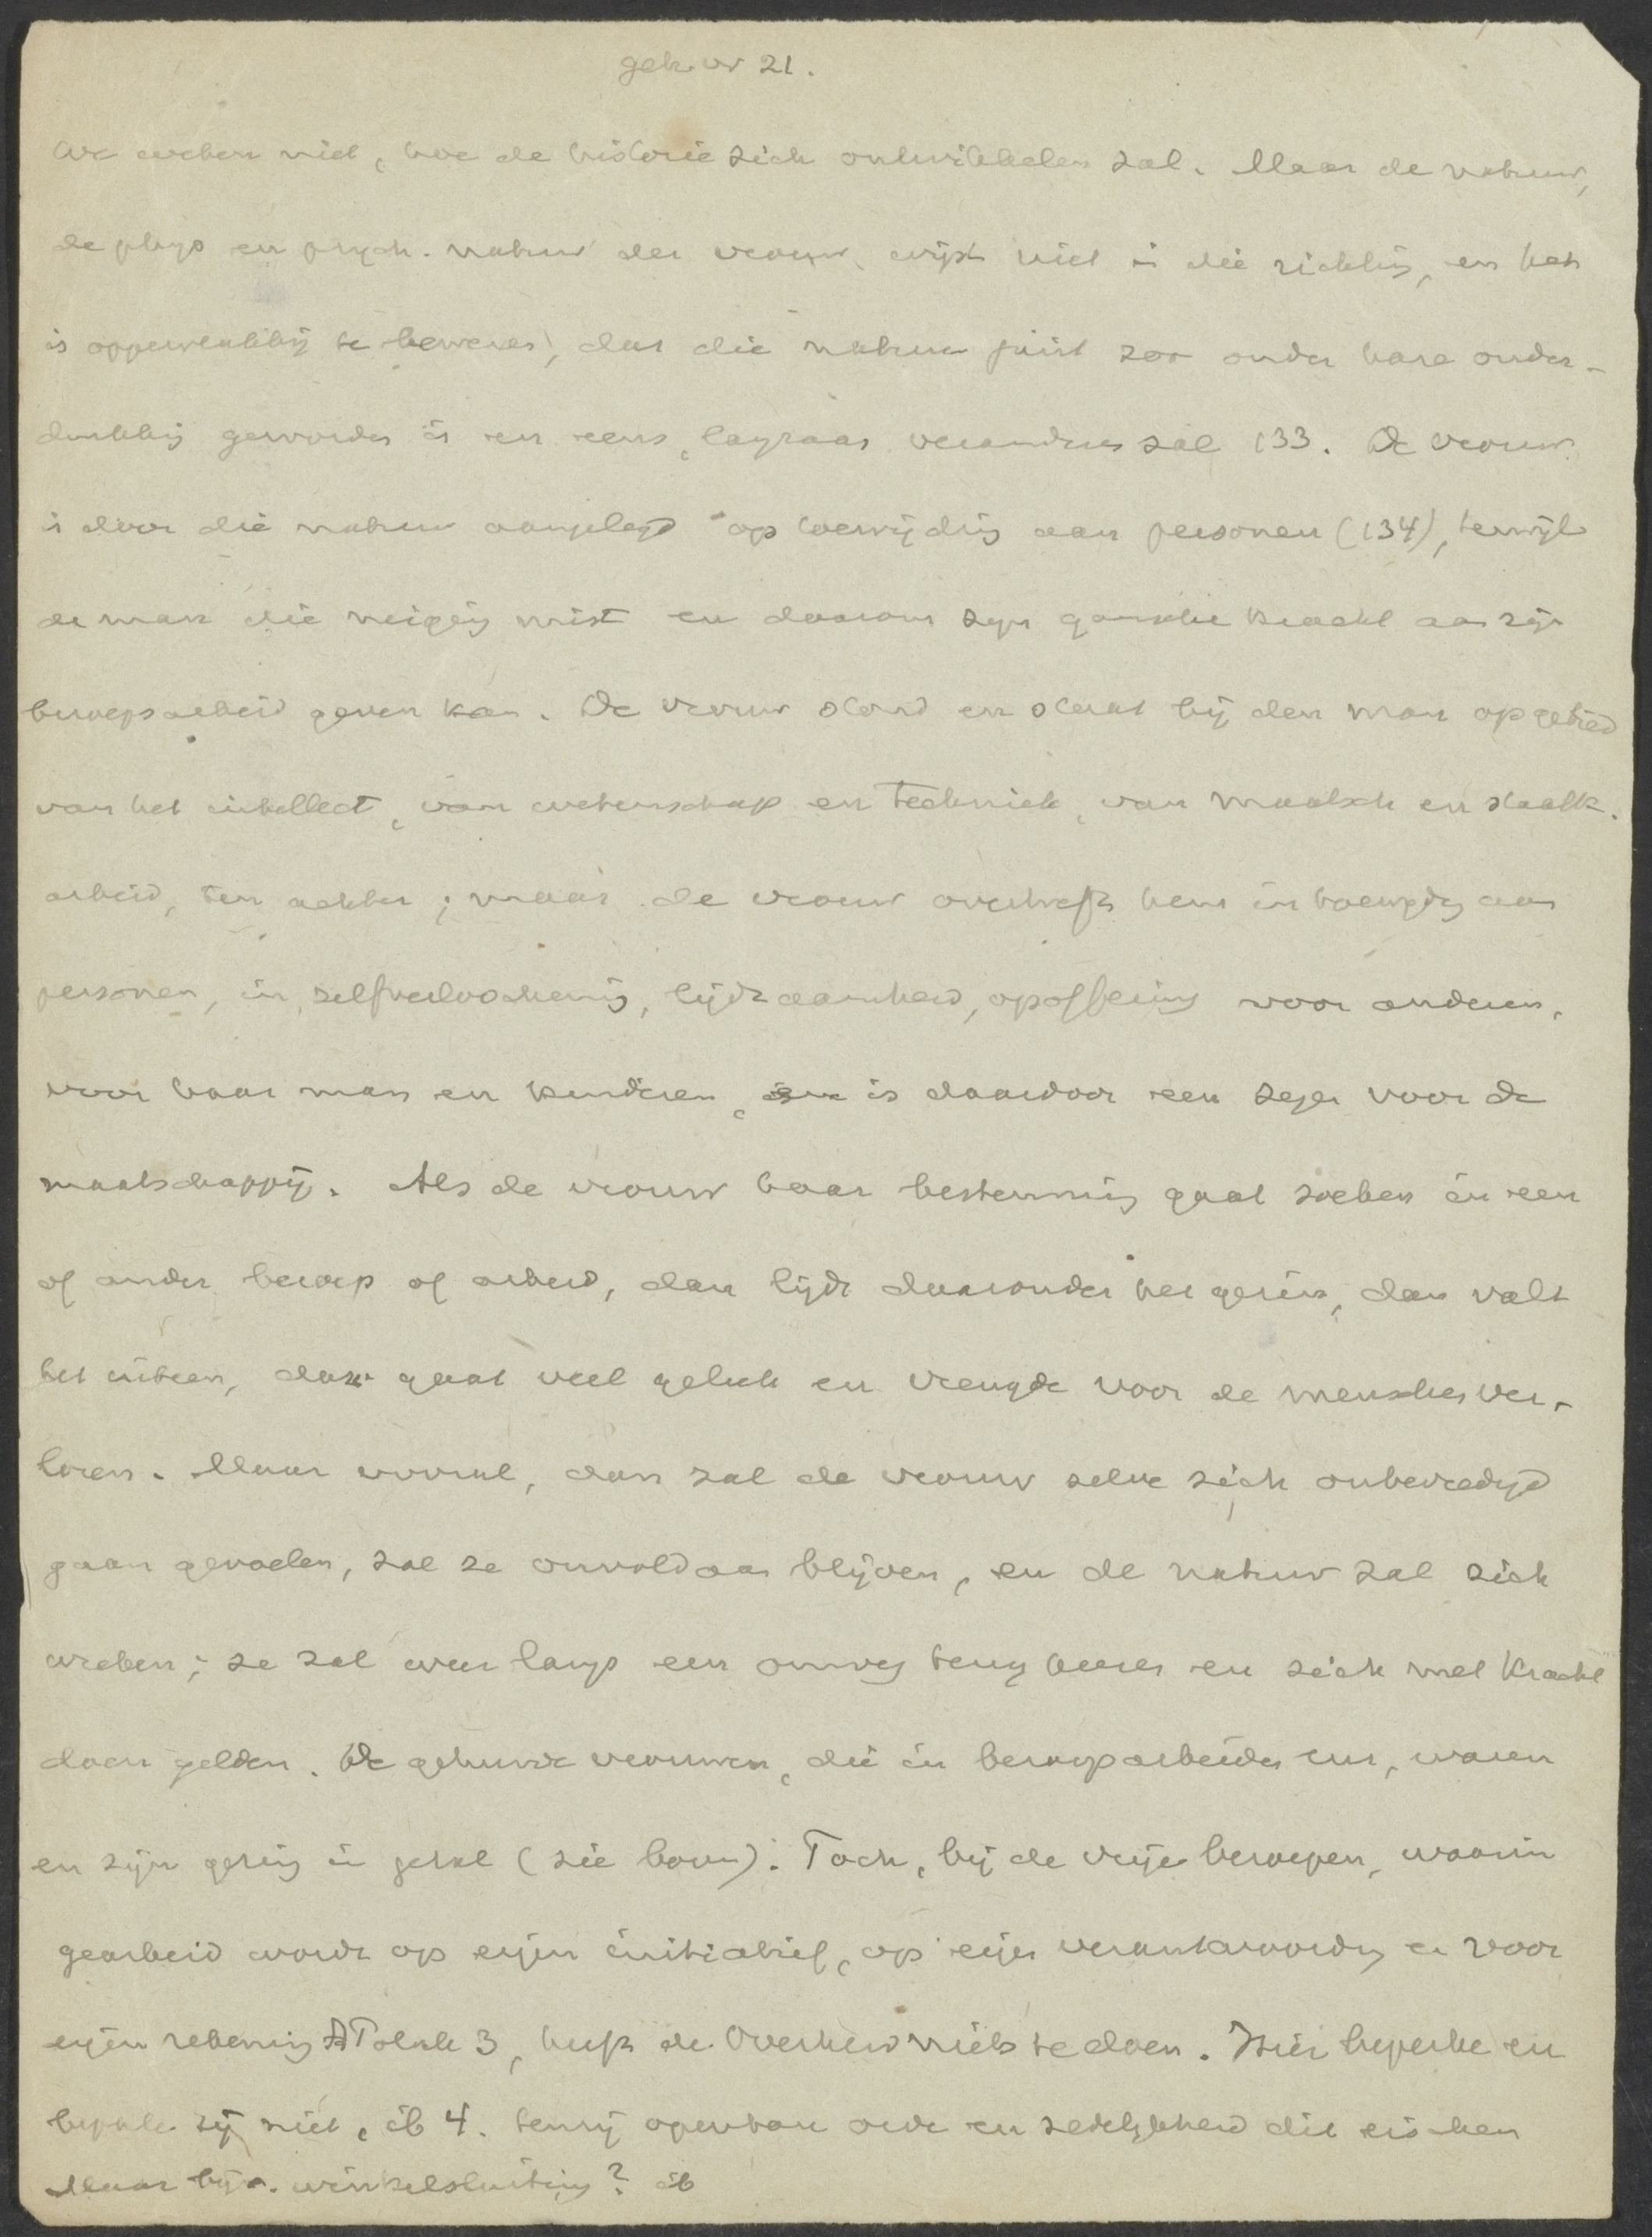 geh. vr 21.
We weten niet, hoe de historie zich ontwikkelen zal. Maar de natuur,
de phys en psych. natuur der vrouw, wijst niet in die richting, en het
is oppervlakkig te beweren, dat die natuur juist zoo onder hare onder-
drukking geworden is en eens, langzaam veranderen zal 133. De vrouw
is door die natuur aangelegd op toewijding aan personen (134), terwijl
de man die neiging mist en daarom zijn gansche kracht aan zijn
beroepsarbeid geven kan. De vrouw stond en staat bij den man op gebied
van het intellect, van wetenschap en techniek, van maatsch en staatk.
arbeid, ten achter; maar de vrouw overtreft hem in toewijdg aan
personen, in zelfverloochening, lijdzaamheid, opoffering voor anderen,
voor haar man en kinderen, en is daardoor een zegen voor de
maatschappij. Als de vrouw haar bestemming gaat zoeken in een
of ander beroep of arbeid, dan lijdt daaronder het gezin, dan valt
het uiteen, dan gaat veel geluk en vreugde voor de menschen ver-
loren. Maar vooral, dan zal de vrouw zelve zich onbevredigd
gaan gevoelen, zal ze onvoldaan blijven, en de natuur zal zich
wreken; ze zal weer langs een omweg terug keeren en zich met kracht
doen gelden. De gehuwde vrouwen, die in beroep arbeiden enz, waren
en zijn gering in getal (zie boven). Toch, bij de vrije beroepen, waarin
gearbeid wordt op eigen initiatief, op eigen verantwoordg en voor
eigen rekening Talma 3, heeft de Overheid niets te doen. Hier beperke en
bepale zij niet, ib 4. tenzij openbare orde en zedelijkheid dit eischen
Maar bijv. winkelsluiting? ib